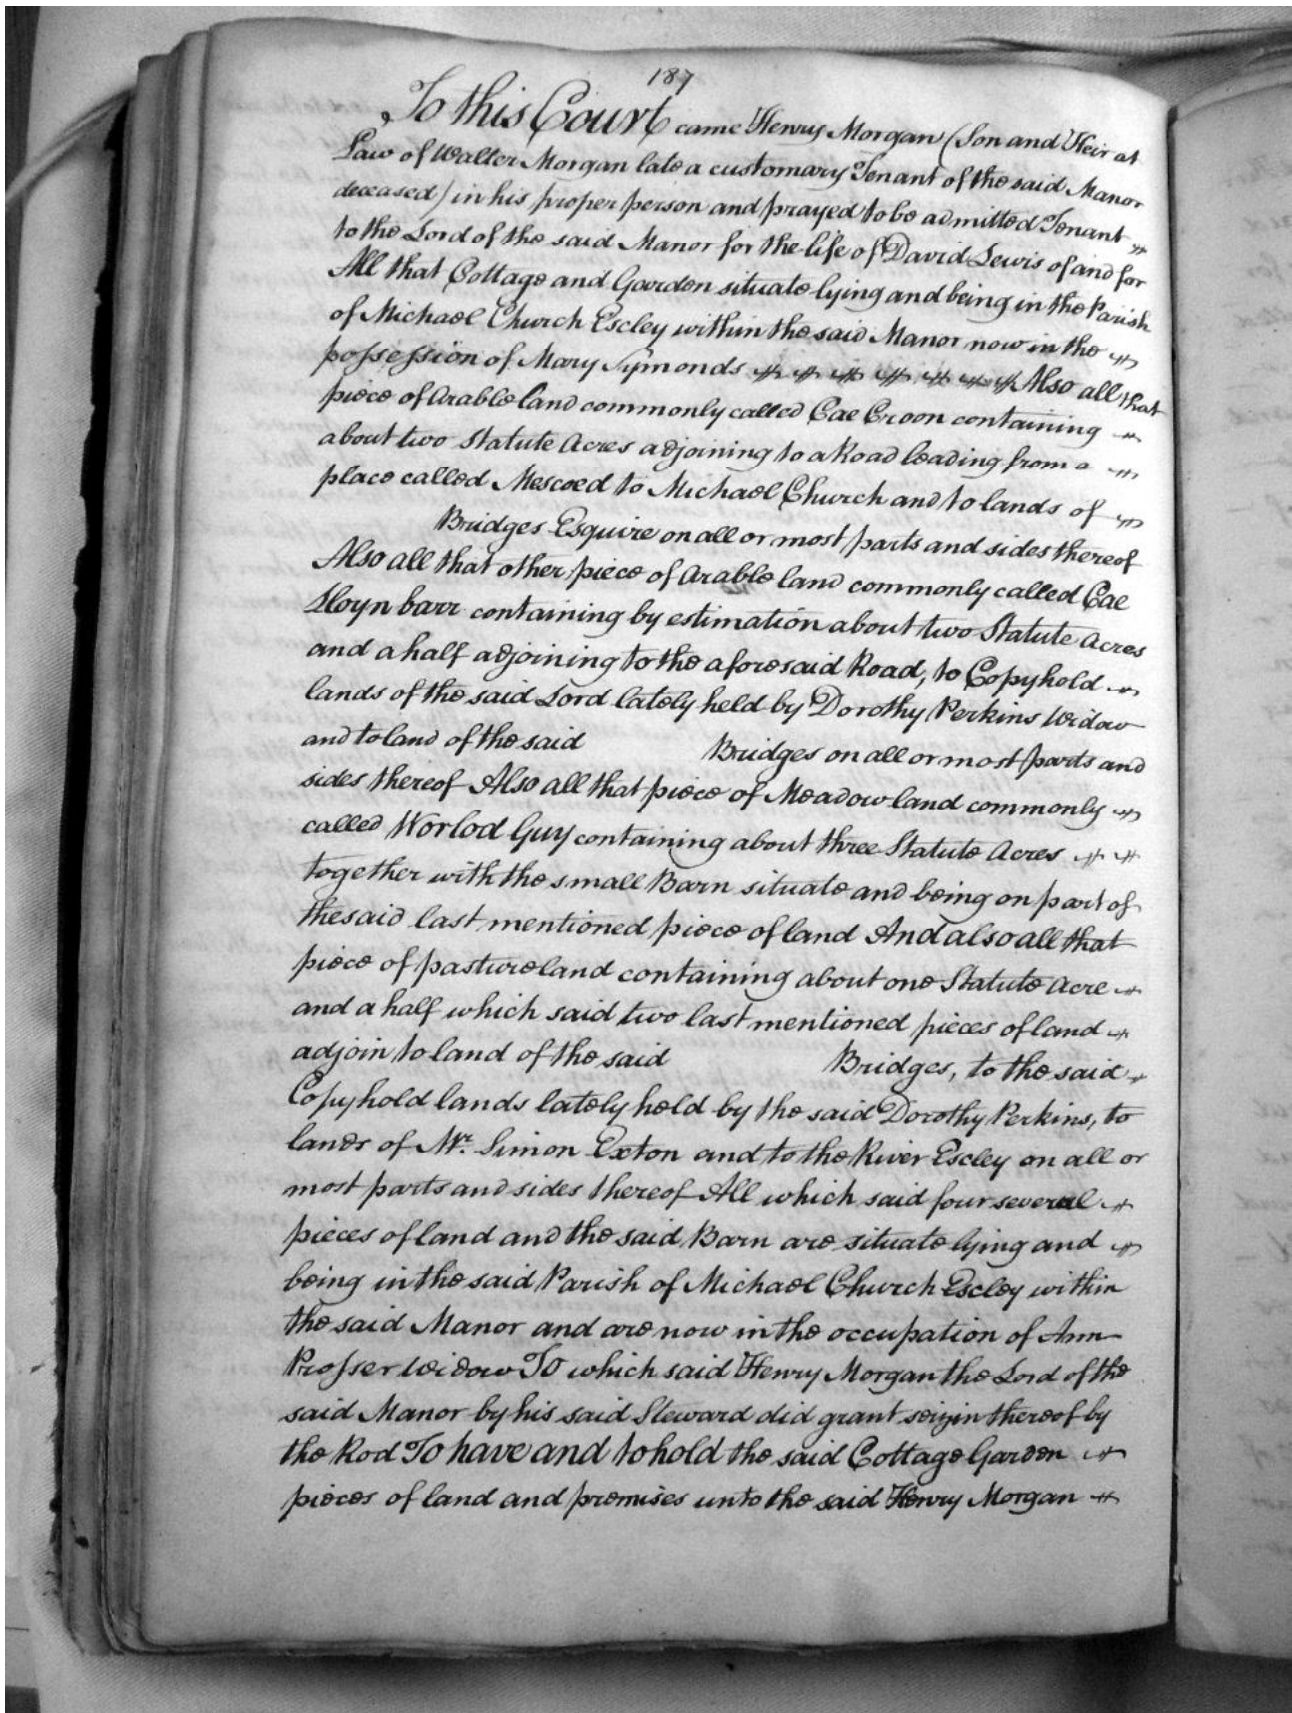 187
To this Court came Henry Morgan (Son and Heir at
Law of Walter Morgan late a customary Tenant of the said Manor
deceased) in his proper person and prayed to be admitted Tenant
to the Lord of the said Manor for the life of David Lewis of and for
All that Cottage and Garden situate lying and being in the Parish
of Michael Church Escley within the said Manor now in the
possession of Mary Symonds Also all that
piece of Arable land commonly called Cae Croon containing
about two Statute Acres adjoining to a Road leading from a
place called Mescoed to Michael Church and to lands of
Bridges Esquire on all or most parts and sides thereof
Also all that other piece of Arable land commonly called Cae
Lloyn barr containing by estimation about two Statute Acres
and a half adjoining to the aforesaid Road, to Copyhold
lands of the said Lord lately held by Dorothy Perkins Widow
and to land of the said Bridges on all or most parts and
sides thereof Also all that piece of Meadow land commonly
called Worlod Guy containing about three Statute Acres
together with the small Barn situate and being on part of
the said last mentioned piece of land And also all that
piece of pasture land containing about one Statute Acre
and a half which said two last mentioned pieces of land
adjoin to land of the said Bridges, to the said
Copyhold lands lately held by the said Dorothy Perkins, to
lands of Mr. Simon Exton and to the River Escley on all or
most parts and sides thereof All which said four several
pieces of land and the said Barn are situate lying and
being in the said Parish of Michael Church Escley within
the said Manor and are now in the occupation of Ann
Prosser Widow To which said Henry Morgan the Lord of the
said Manor by his said Steward did grant seizin thereof by
the Rod To have and to hold the said Cottage Garden
pieces of land and premises unto the said Henry Morgan